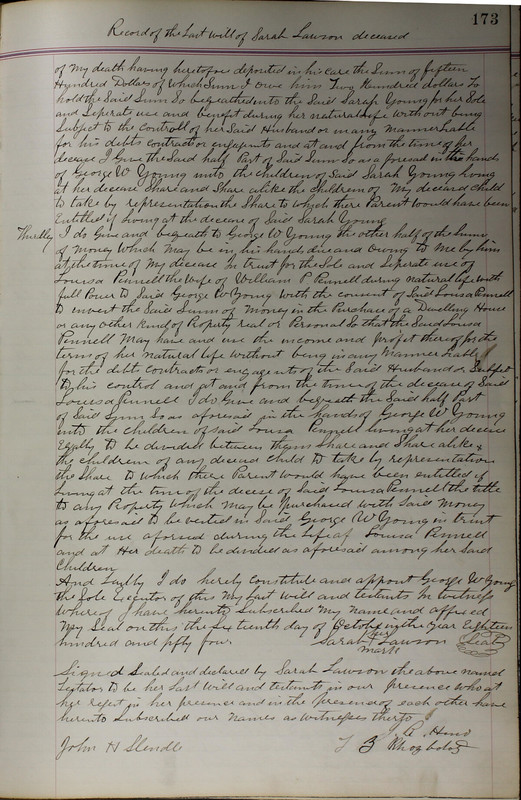 173
Record of the Last will of Sarah Lawson deceased
of my death having heretofore deposited in his care the Sum of fifteen
Hundred Dollars of Which Sum I owe him Two Hundred dollars To
hold the Said Sum So begueathed unto the Said Sarah Young for her Sole
and Seperate use and benefit during her natural life without being
Subject to the Controll of her Said Husband or in any Manner Liable
for his debts contracts or engagements and at and from the time of her
decease I Give the Said half Part of Said Sum So as aforesaid in the hands
of George W Young unto the Children of Said Sarah Young living
at her decease Share and Share alike the Children of My deceased Child
to take by representation the Share to which there Parent would have been
Entitled if Living at the decease of Said Sarah Young
Thirdley I do Give and begueath to George W Young the other half of the Sum
of Money Which May be in his hands due and Owing to Me by him
at the time of My decease In trust for the Sole and Seperate use of
Louisa Pennell the Wife of William P Pennell during natural life with
full Power to Said George W Young with the consent of Said Louisa Pennell
to invest the Said Sum of Money in the Purchase of a Dwelling House
or any other Kind of Property real or Personal So that the Said Louisa
Pennell May have and use the income and profit thereof for the
term of her natural life without being in any Manner Liable
for the debt contracts or engagents of the Said Husband or Subject
to his control and at and from the time of the decease of Said
Louisa Pennell I do Give and begueath the Said half Part
of Said Sum So as aforesaid in the hands of George W Young
unto the Children of Said Louisa Pennell living at her decease
Equally to be divided between them Share and Share alike &
the children of any deceased Child to take by representation
the Share to which there Parent would have been entitled if
Living at the time of the decease of Said Louisa Pennell the title
to any Property which May be purchased with Said Money
as aforesaid to be vested in Said George W Young in trust
for the use aforesaid during the Life of Louisa Pennell
and at Her death to be divided as aforesaid among her Said
Children
And Lastly I do hereby constitute and appoint George W Young
the Sole Executor of this My Last will and In Witness
Whereof I have hereunto Subscribed My name and affixed
My Seal on this the Sixteenth day of October in the Year Eighteen
hundred and fifty four
Sarah her Lawson Seal
mark
Signed Sealed and declared by Sarah Lawson the above named
to be her Last Will and in our presence who at
her in her presence and in the presence of each other have
hereunto Subscribed our Names as Witnesses thereto
John H